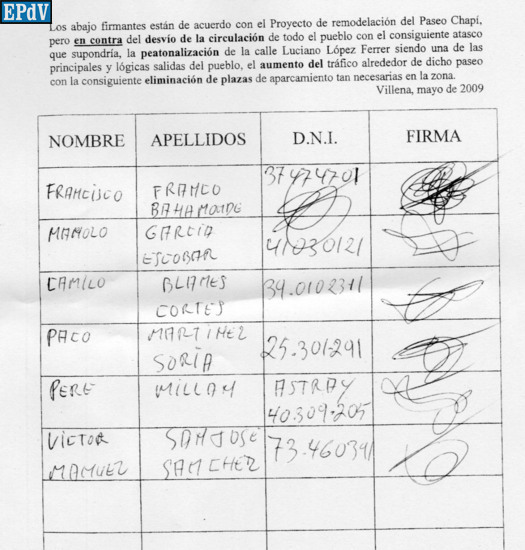 EPdV
Los abajo firmantes están de acuerdo con el Proyecto de remodelación del Paseo Chapí,
pero en contra del desvío de la circulación de todo el pueblo con el consiguiente atasco
que supondría, la peatonalización de la calle Luciano López Ferrer siendo una de las
principales y lógicas salidas del pueblo, el aumento del tráfico alrededor de dicho paseo
con la consiguiente eliminación de plazas de aparcamiento tan necesarias en la zona.
Villena, mayo de 2009
NOMBRE APELLIDOS D.N.I. FIRMA
FRANCISCO FRANCO 37474701
BAHAMONDE
MANOLO GARCIA 41030121
ESCOBAR
CAMILO BLAMES 39.0102311
CORTES
PACO MARTINEZ 25.301291
SORIA
PERE MILLAM ASTRAY
40.309.205
VICTOR SANJOSE 73.460391
MANUEL SANCHEZ